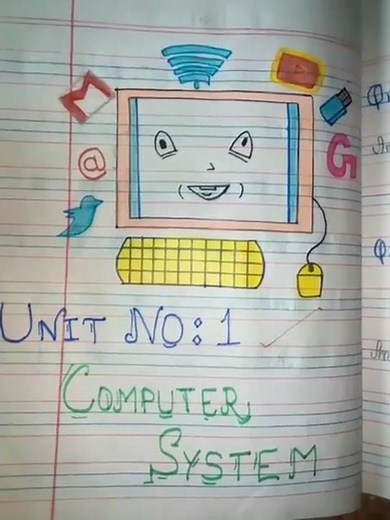 @
G
UNIT NO: 1
COMPUTER
SYSTEM